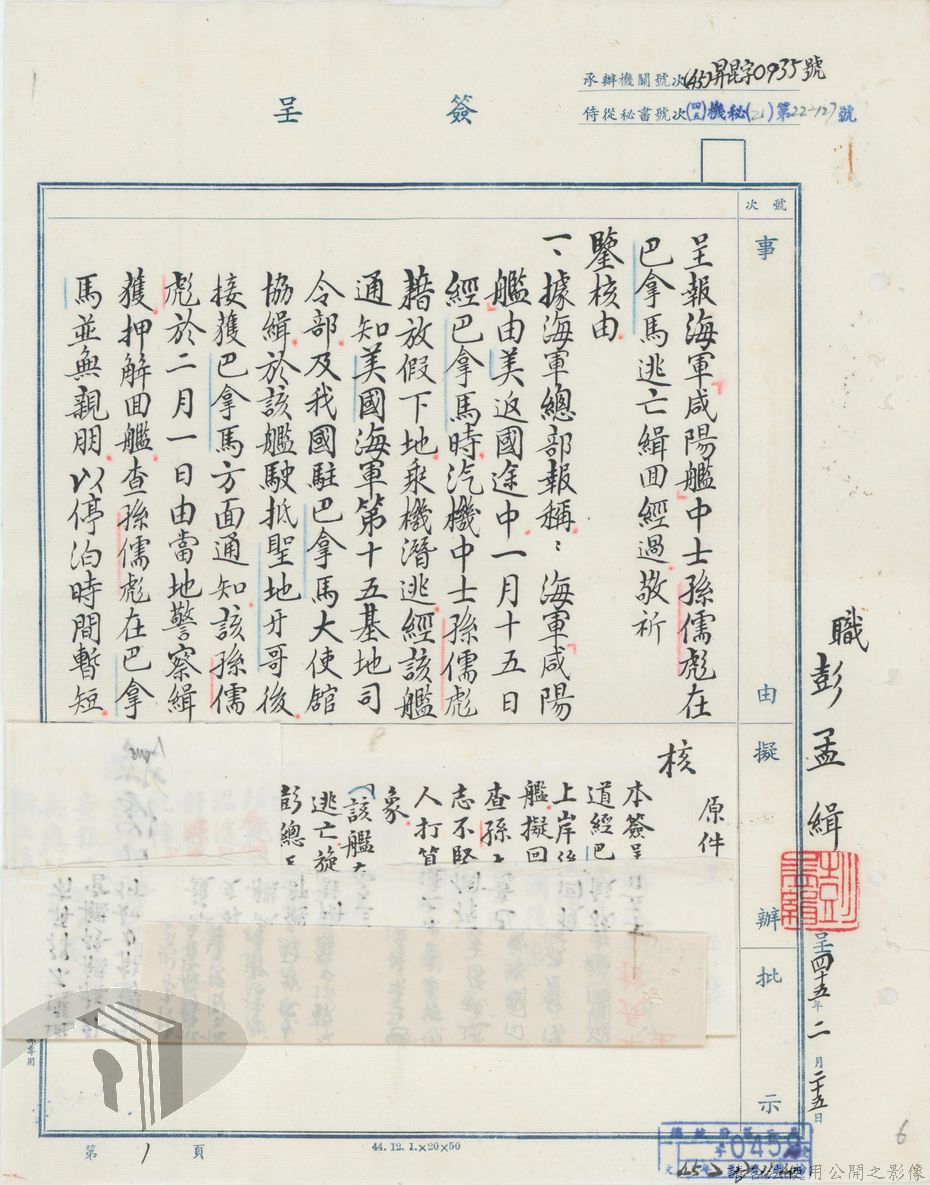 簽呈
承辦機關號次(45)昇昆字0935號
侍從秘書號次(四五)機秘(乙)第22-127號
號次
事由
擬辦
批示
呈報海軍咸陽艦中士孫儒彪在
巴拿馬逃亡緝回經過敬祈
鑒核由
一、據海軍總部報稱：海軍咸陽
艦由美返國途中一月十五日
經巴拿馬時汽機中士孫儒彪
藉放假下地乘機潛逃經該艦
通知美國海軍第十五基地司
令部及我國駐巴拿馬大使館
協緝於該艦駛抵聖地牙哥後
接獲巴拿馬方面通知該孫儒
彪於二月一日由當地警察緝
獲押解回艦查孫儒彪在巴拿
馬並無親朋以停泊時間暫短
原件
核
本簽呈
道經巴
上岸後
艦擬回
查孫
志不堅
人打算
象
該艦
逃亡旋
彭總
職彭孟緝
呈四十五年二月二十五日
第1頁
44.12.1.×20×50
0452
6
使用公開之影像